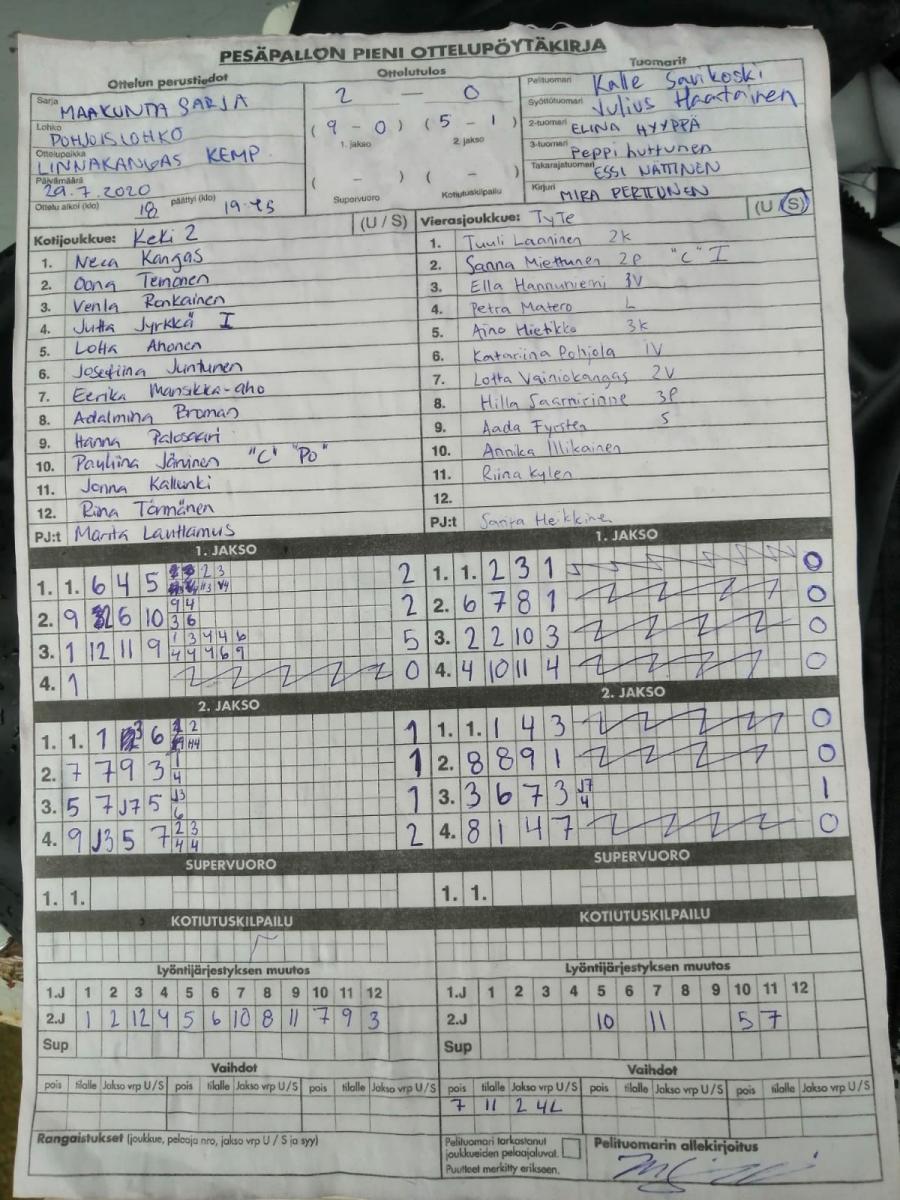 PESÄPALLON PIENI OTTELUPÖYTÄKIRJA
Ottelun perustiedot
Sarja MAAKUNTA SARJA
Lohko POHJOISLOHKO
Ottelupaikka LINNAKANGAS KEMP.
Päivämäärä 29.7.2020
Ottelu alkoi (klo) 18 päättyi (klo) 19.45
Ottelutulos
2 - 0
(9 - 0) (5 - 1)
1. jakso 2. jakso
( - ) ( - )
Supervuoro Kotiutuskilpailu
Tuomarit
Pelituomari Kalle Savikoski
Syöttötuomari Julius Haatainen
2-tuomari ELINA HYYPPÄ
3-tuomari Peppi huttunen
Takarajatuomari ESSI NÄTTINEN
Kirjuri MIRA PERTTUNEN
Kotijoukkue: KeKi 2 (U / S)
1. Neea Kangas
2. Oona Temonen
3. Venla Ronkainen
4. Jutta Jyrkkä I
5. Lotta Ahonen
6. Josefiina Juntunen
7. Eerika Mansikka-aho
8. Adalmina Broman
9. Hanna Palosaari
10. Pauliina Jäninen "C" "Po"
11. Jonna Kallunki
12. Riina Törmänen
PJ:t Marita Lauttamus
Vierasjoukkue: TyTe (U / S)
1. Tuuli Laaninen 2k
2. Sanna Miettunen 2p "C" I
3. Ella Hannuniemi 3V
4. Petra Matero L
5. Aino Hietikko 3k
6. Katariina Pohjola 1V
7. Lotta Vainiokangas 2V
8. Hilla Saarnirinne 3P
9. Aada Fyrsten S
10. Annika Illikainen
11. Riina Kylen
12.
PJ:t Sanra Heikkinen
1. JAKSO
1. 1. 6 4 5 2
2. 9 6 10 9 4 3 6 2
3. 1 12 11 9 1 3 4 4 6 4 4 4 6 9 5
4. 1 0
1. JAKSO
1. 1. 2 3 1 0
2. 6 7 8 1 0
3. 2 2 10 3 0
4. 4 10 11 4 0
2. JAKSO
1. 1. 1 3 6 1
2. 7 7 9 3 1 4 1
3. 5 7 J7 5 J3 6 1
4. 9 J3 5 7 2 3 4 4 2
2. JAKSO
1. 1. 1 4 3 0
2. 8 8 9 1 0
3. 3 6 7 3 J7 4 1
4. 8 1 4 7 0
SUPERVUORO
1. 1.
SUPERVUORO
1. 1.
KOTIUTUSKILPAILU
KOTIUTUSKILPAILU
Lyöntijärjestyksen muutos
1.J 1 2 3 4 5 6 7 8 9 10 11 12
2.J 1 2 12 4 5 6 10 8 11 7 9 3
Sup
Lyöntijärjestyksen muutos
1.J 1 2 3 4 5 6 7 8 9 10 11 12
2.J 10 11 5 7
Sup
Vaihdot
pois tilalle Jakso vrp U / S pois tilalle Jakso vrp U / S pois tilalle Jakso vrp U / S
Vaihdot
pois tilalle Jakso vrp U / S pois tilalle Jakso vrp U / S pois tilalle Jakso vrp U / S
7 11 2 4L
Rangaistukset (joukkue, pelaaja nro, jakso vrp U / S ja syy)
Pelituomari tarkastanut
joukkueiden pelaajaluvat.
Puutteet merkitty erikseen.
Pelituomarin allekirjoitus